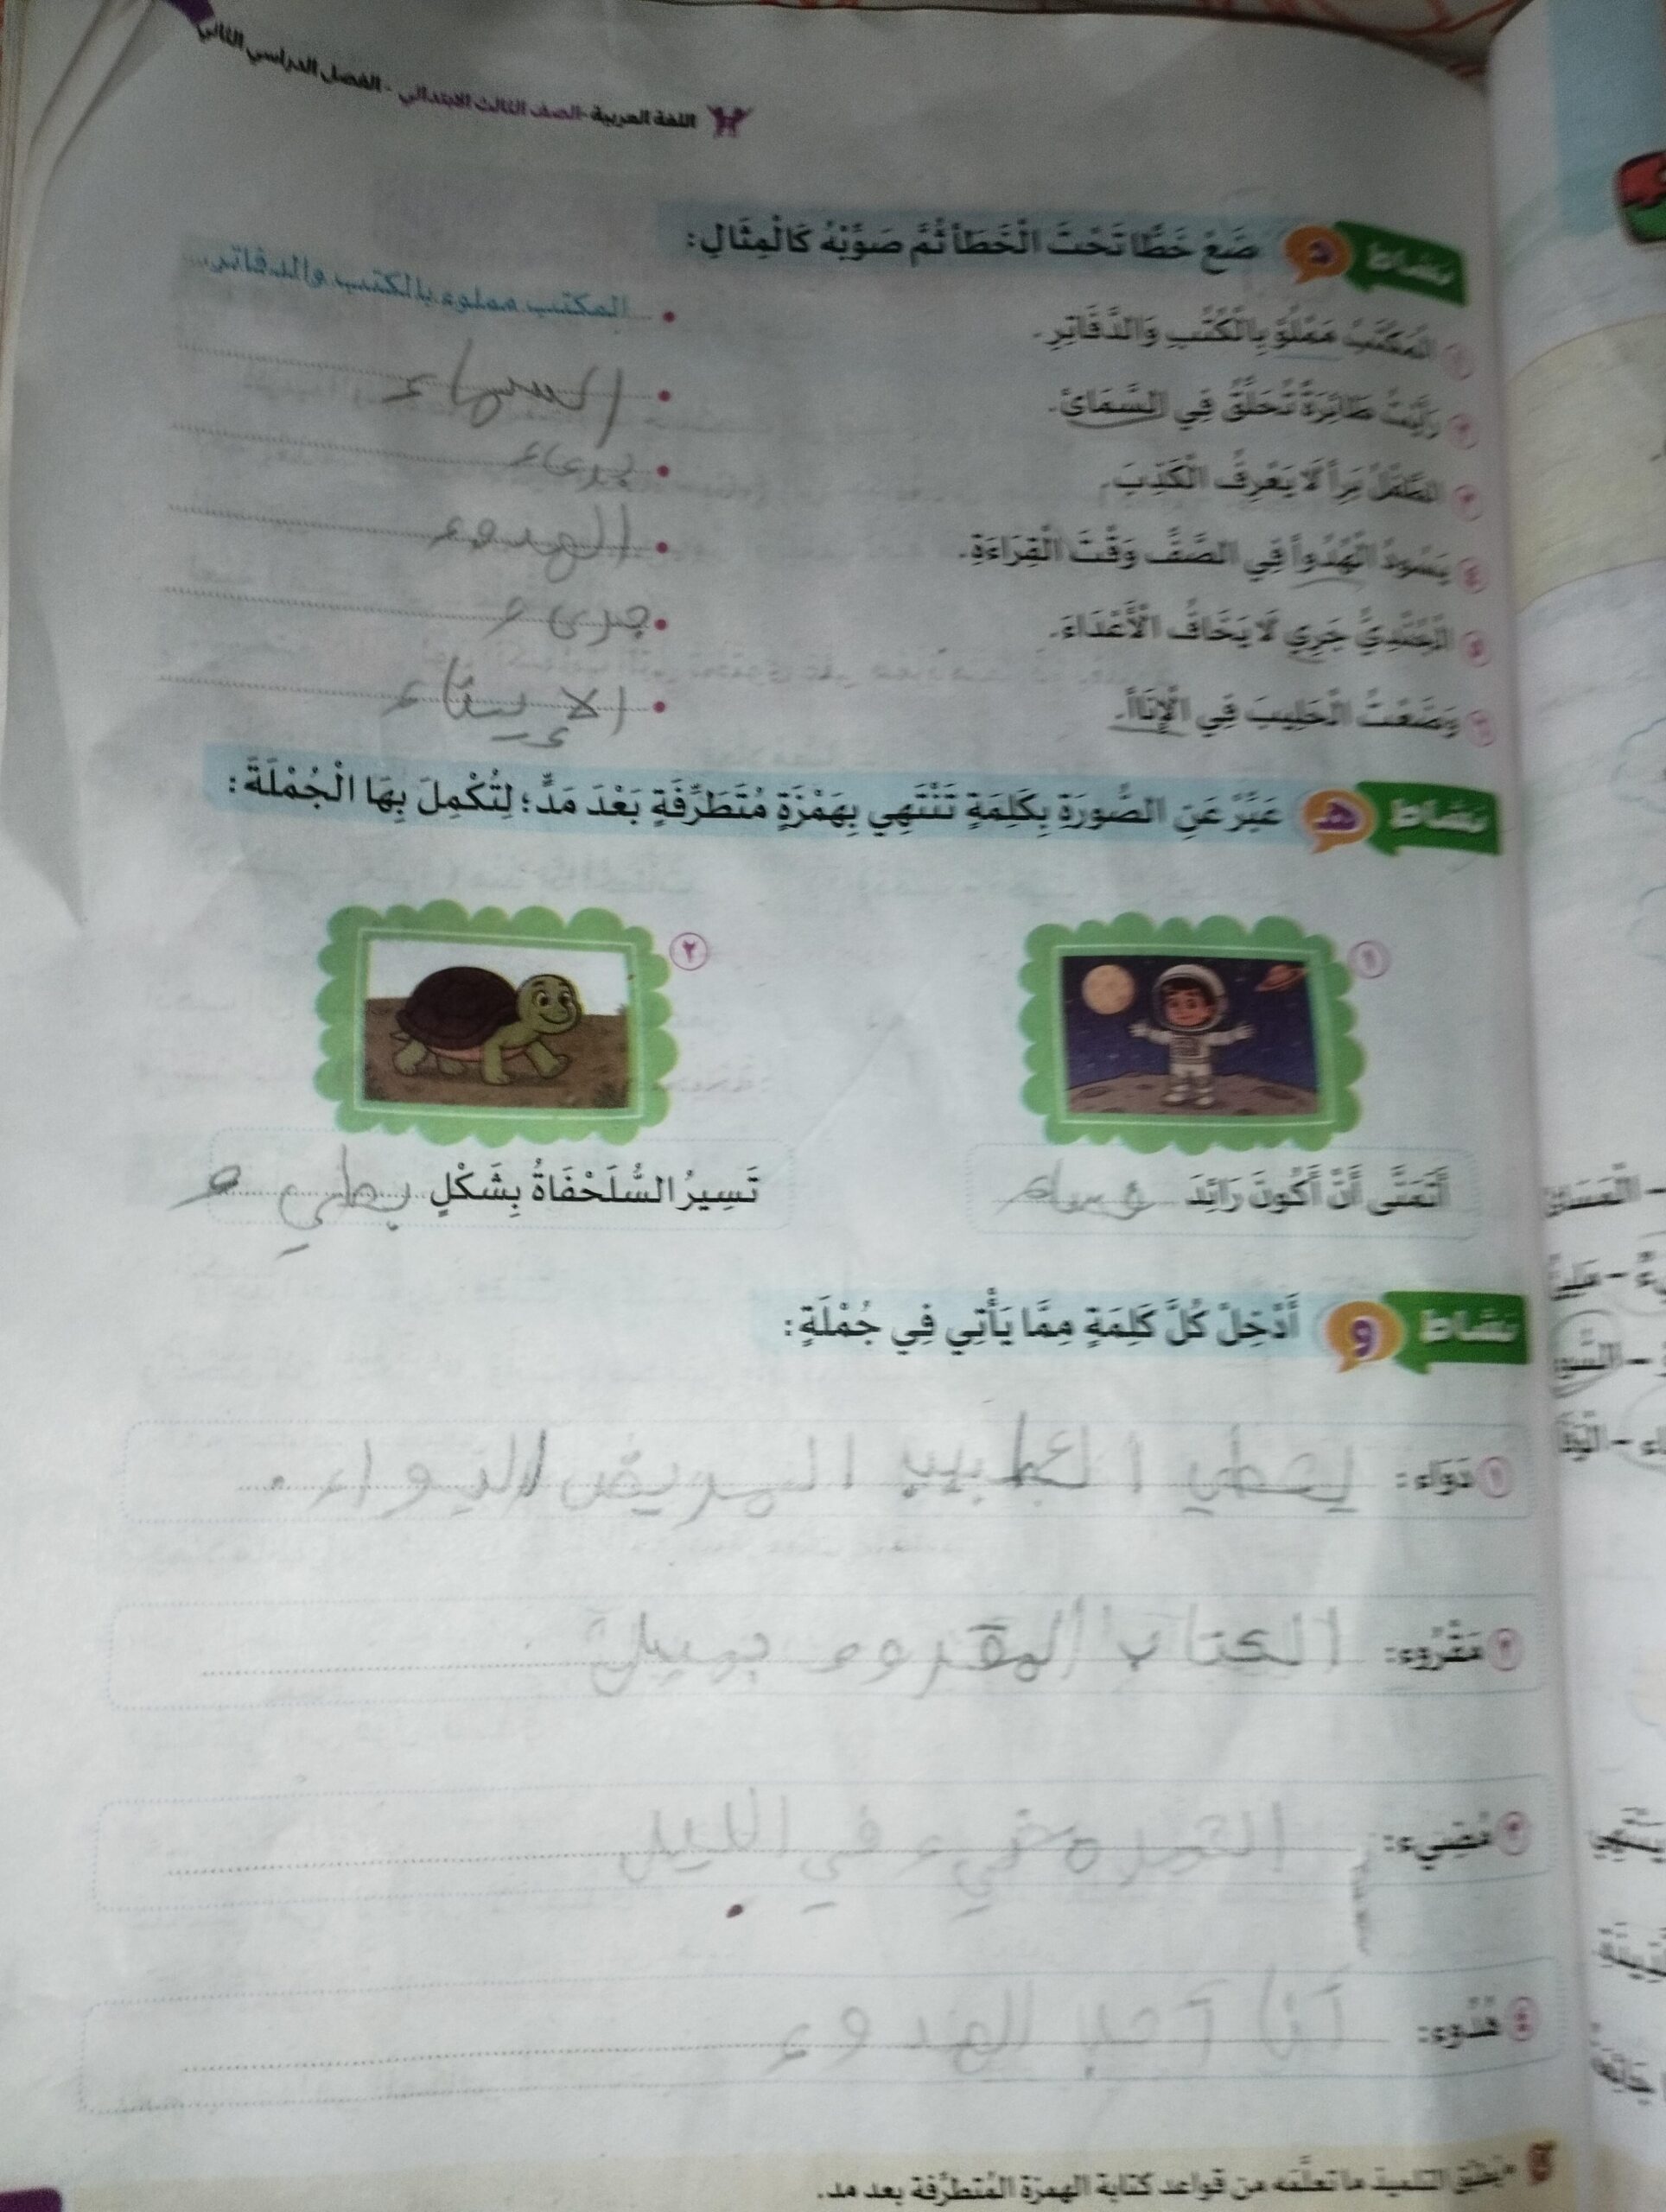 اللغة العربية - الصف الثالث الابتدائي - الفصل الدراسي الثاني
نشاط د ضَعْ خَطًّا تَحْتَ الْخَطَأ ثُمَّ صَوِّبْهُ كَالْمِثَالِ:
١ الْمَكْتَبُ مَمْلُوٌ بِالْكُتُبِ وَالدَّفَاتِرِ. • المكتب مملوء بالكتب والدفاتر.
٢ رَأَيْتُ طَائِرَةً تُحَلِّقُ فِي السَّمَائْ. • السماء
٣ الطِّفْلُ بَرِأ لَا يَعْرِفُ الْكَذِبَ. • بريء
٤ يَسُودُ الْهُدُوأ فِي الصَّفِّ وَقْتَ الْقِرَاءَةِ. • الهدوء
٥ الْجُنْدِيُّ جَرِي لَا يَخَافُ الْأَعْدَاءَ. • جرىء
٦ وَضَعْتُ الْحَلِيبَ فِي الْإِنَاأ. •
نشاط هـ عَبِّرْ عَنِ الصُّورَةِ بِكَلِمَةٍ تَنْتَهِي بِهَمْزَةٍ مُتَطَرِّفَةٍ بَعْدَ مَدٍّ؛ لِتُكْمِلَ بِهَا الْجُمْلَةَ:
١
أَتَمَنَّى أَنْ أَكُونَ رَائِدَ
٢
تَسِيرُ السُّلَحْفَاةُ بِشَكْلٍ بطيء
نشاط و أَدْخِلْ كُلَّ كَلِمَةٍ مِمَّا يَأْتِي فِي جُمْلَةٍ:
١ دَوَاء: يعطي الطبيب المريض الدواء.
٢ مَقْرُوء: الكتاب المقروء جميل
٣ تُضِيء: في الليل
٤ هُدُوء: أنا أحب الهدوء
يُطبِّق التلميذ ما تعلَّمه من قواعد كتابة الهمزة المُتطرِّفة بعد مد.